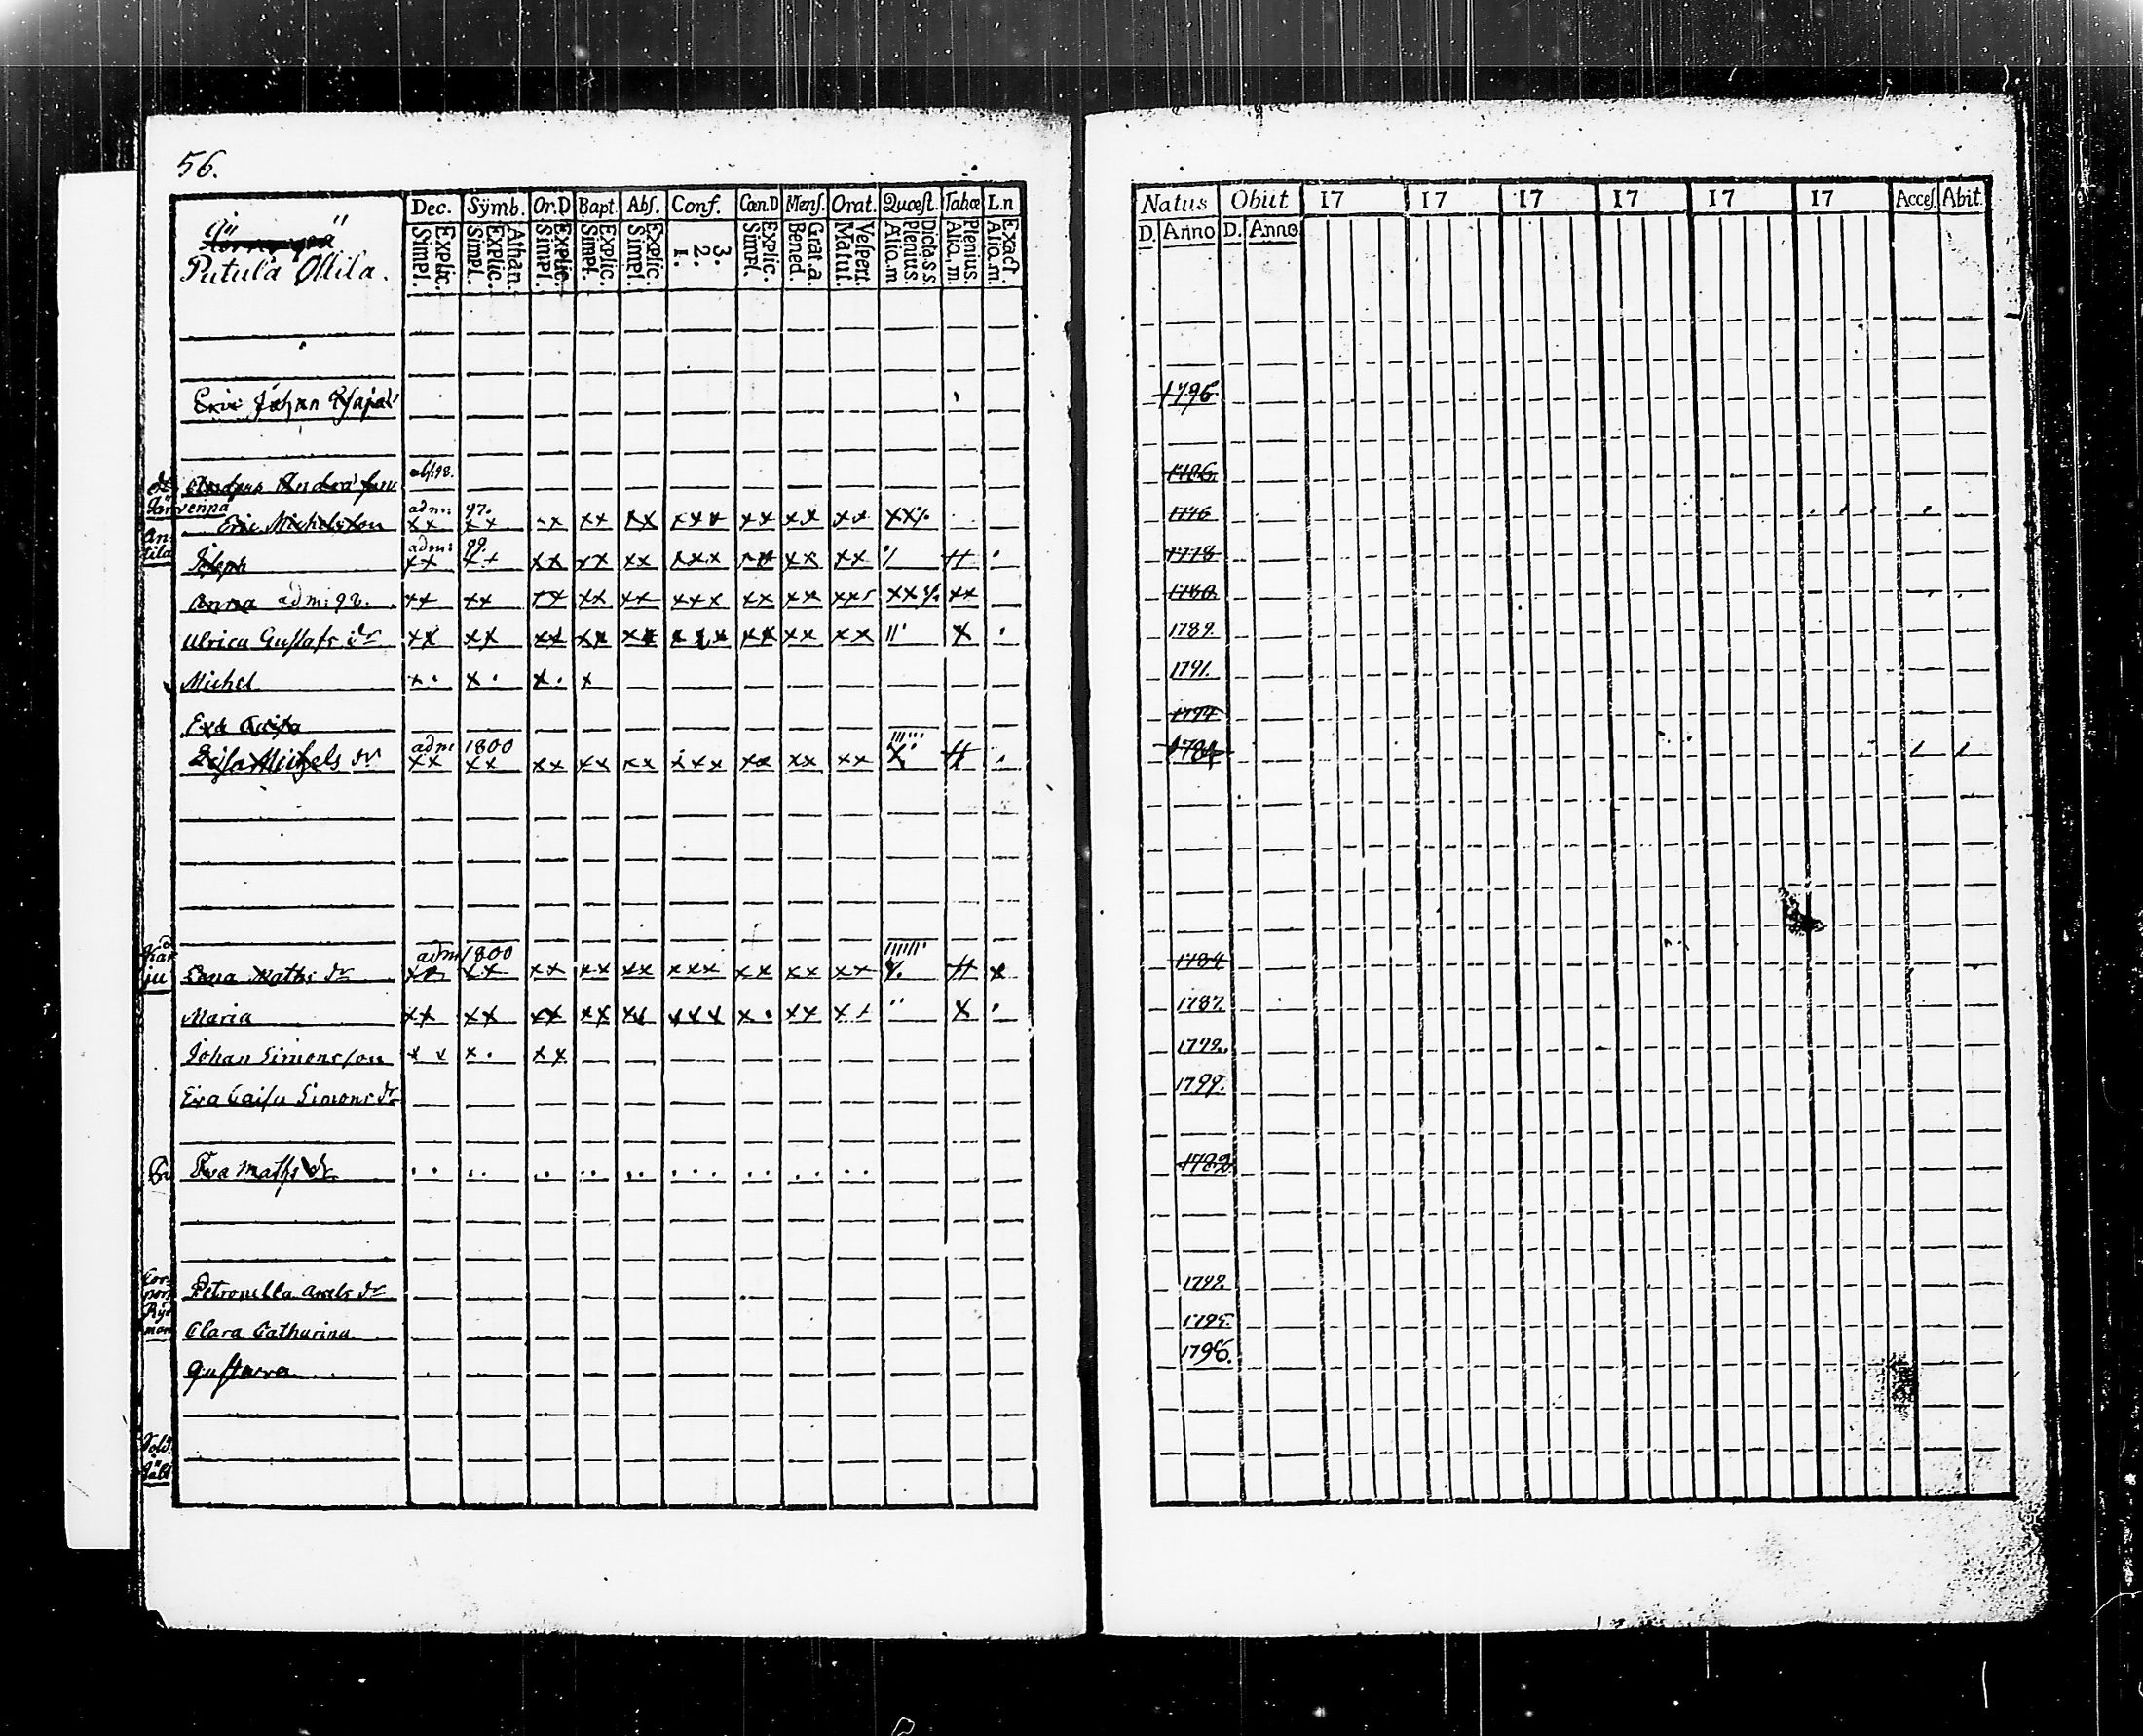 56.
Putula Ollila.
Dec. Sÿmb. Or.D Bapt. Abſ. Conſ. Cœn.D Menſ. Orat. Quœſt. Tabœ L.n
Explic. Simpl. Athan. Explic. Simpl. Explic. Simpl. Explic. Simpl. Explic. Simpl. 3. 2. 1. Explic. Simpl. Grat.a. Bened. Veſpert. Matut. Dicta.s.s. Plenius. Alio.m Plenius. Alio.m. Exact. Alio.m.
Natus Obiit 17 17 17 17 17 17 Acceſ. Abit.
D. Anno D. Anno
Eric Johan 1795
Anders Andræ 1786
adm: 97.
Eric Michelsson xx xx xx xx xx xxx xx xx xx 1776
An-
tila
adm: 99.
Joseph xx xx xx xx xx xxx xx xx xx 1778
Anna adm: 98. xx xx xx xx xx xxx xx xx xx 1780
Ulrica Gustafs dr xx xx xx xx xx xxx xx xx xx x 1789.
Michel x. x. x. x 1791.
Eva Caisa 1794
adm 1800
Caisa Michels dr xx xx xx xx xx xxx xx xx xx 1784
adm 1800
Maths dr xx xx xx xx xx xxx xx xx xx x 1784
Maria xx xx xx xx xx xxx x. xx xx x 1787.
Johan Simonsson xx x. xx 1792.
Eva Caisa Simons dr 1799.
Eva Maths dr 1782
Petronella Axels dr 1792.
Clara Catharina 1795.
Gustava 1796.